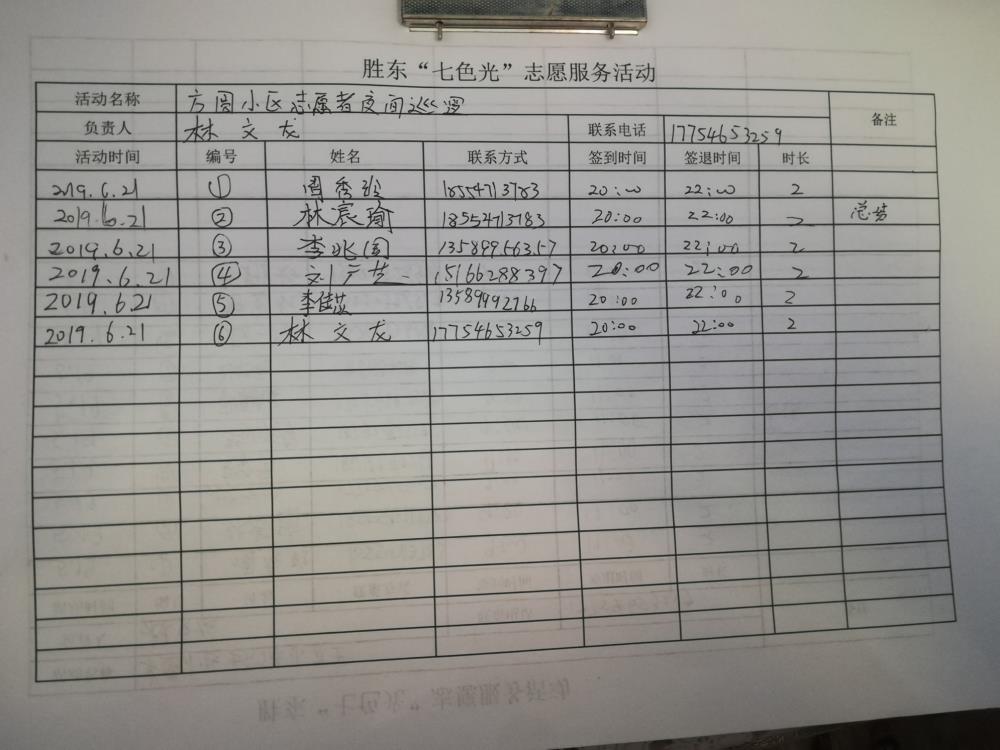 胜东“七色光”志愿服务活动
活动名称 方圆小区志愿者夜间巡逻 备注
负责人 林文龙 联系电话 17754653259
活动时间 编号 姓名 联系方式 签到时间 签退时间 时长
2019.6.21 ① 周秀玲 18554713783 20:00 22:00 2
2019.6.21 ② 林宸瑜 18554713783 20:00 22:00 2
2019.6.21 ③ 李兆国 13589966357 20:00 22:00 2
2019.6.21 ④ 刘广芝 15166288397 20:00 22:00 2
2019.6.21 ⑤ 13589992766 20:00 22:00 2
2019.6.21 ⑥ 林文龙 17754653259 20:00 22:00 2